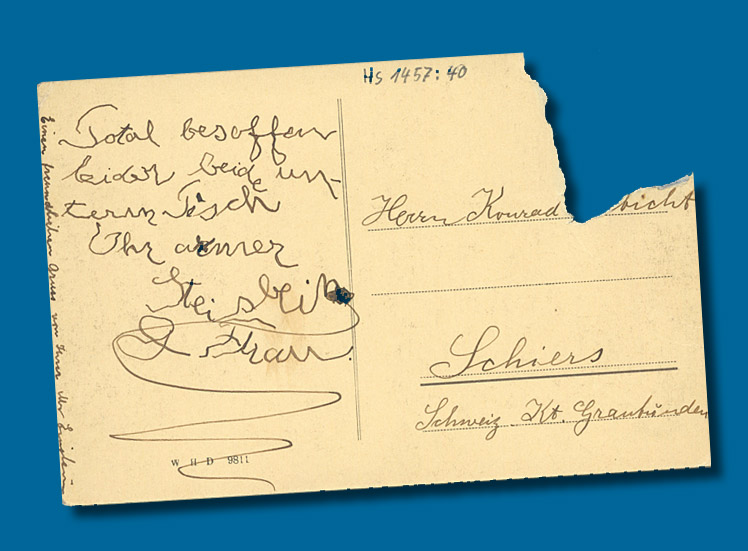 Hs 1457:40
Total besoffen
leider beide un-
term Tisch
Ihr armer
Steissbein
& Frau.
Einen freundlichen Gruss von Ihrer
W H D 9811
Herrn Konrad bicht
Schiers
Schweiz. Kt. Graubünden